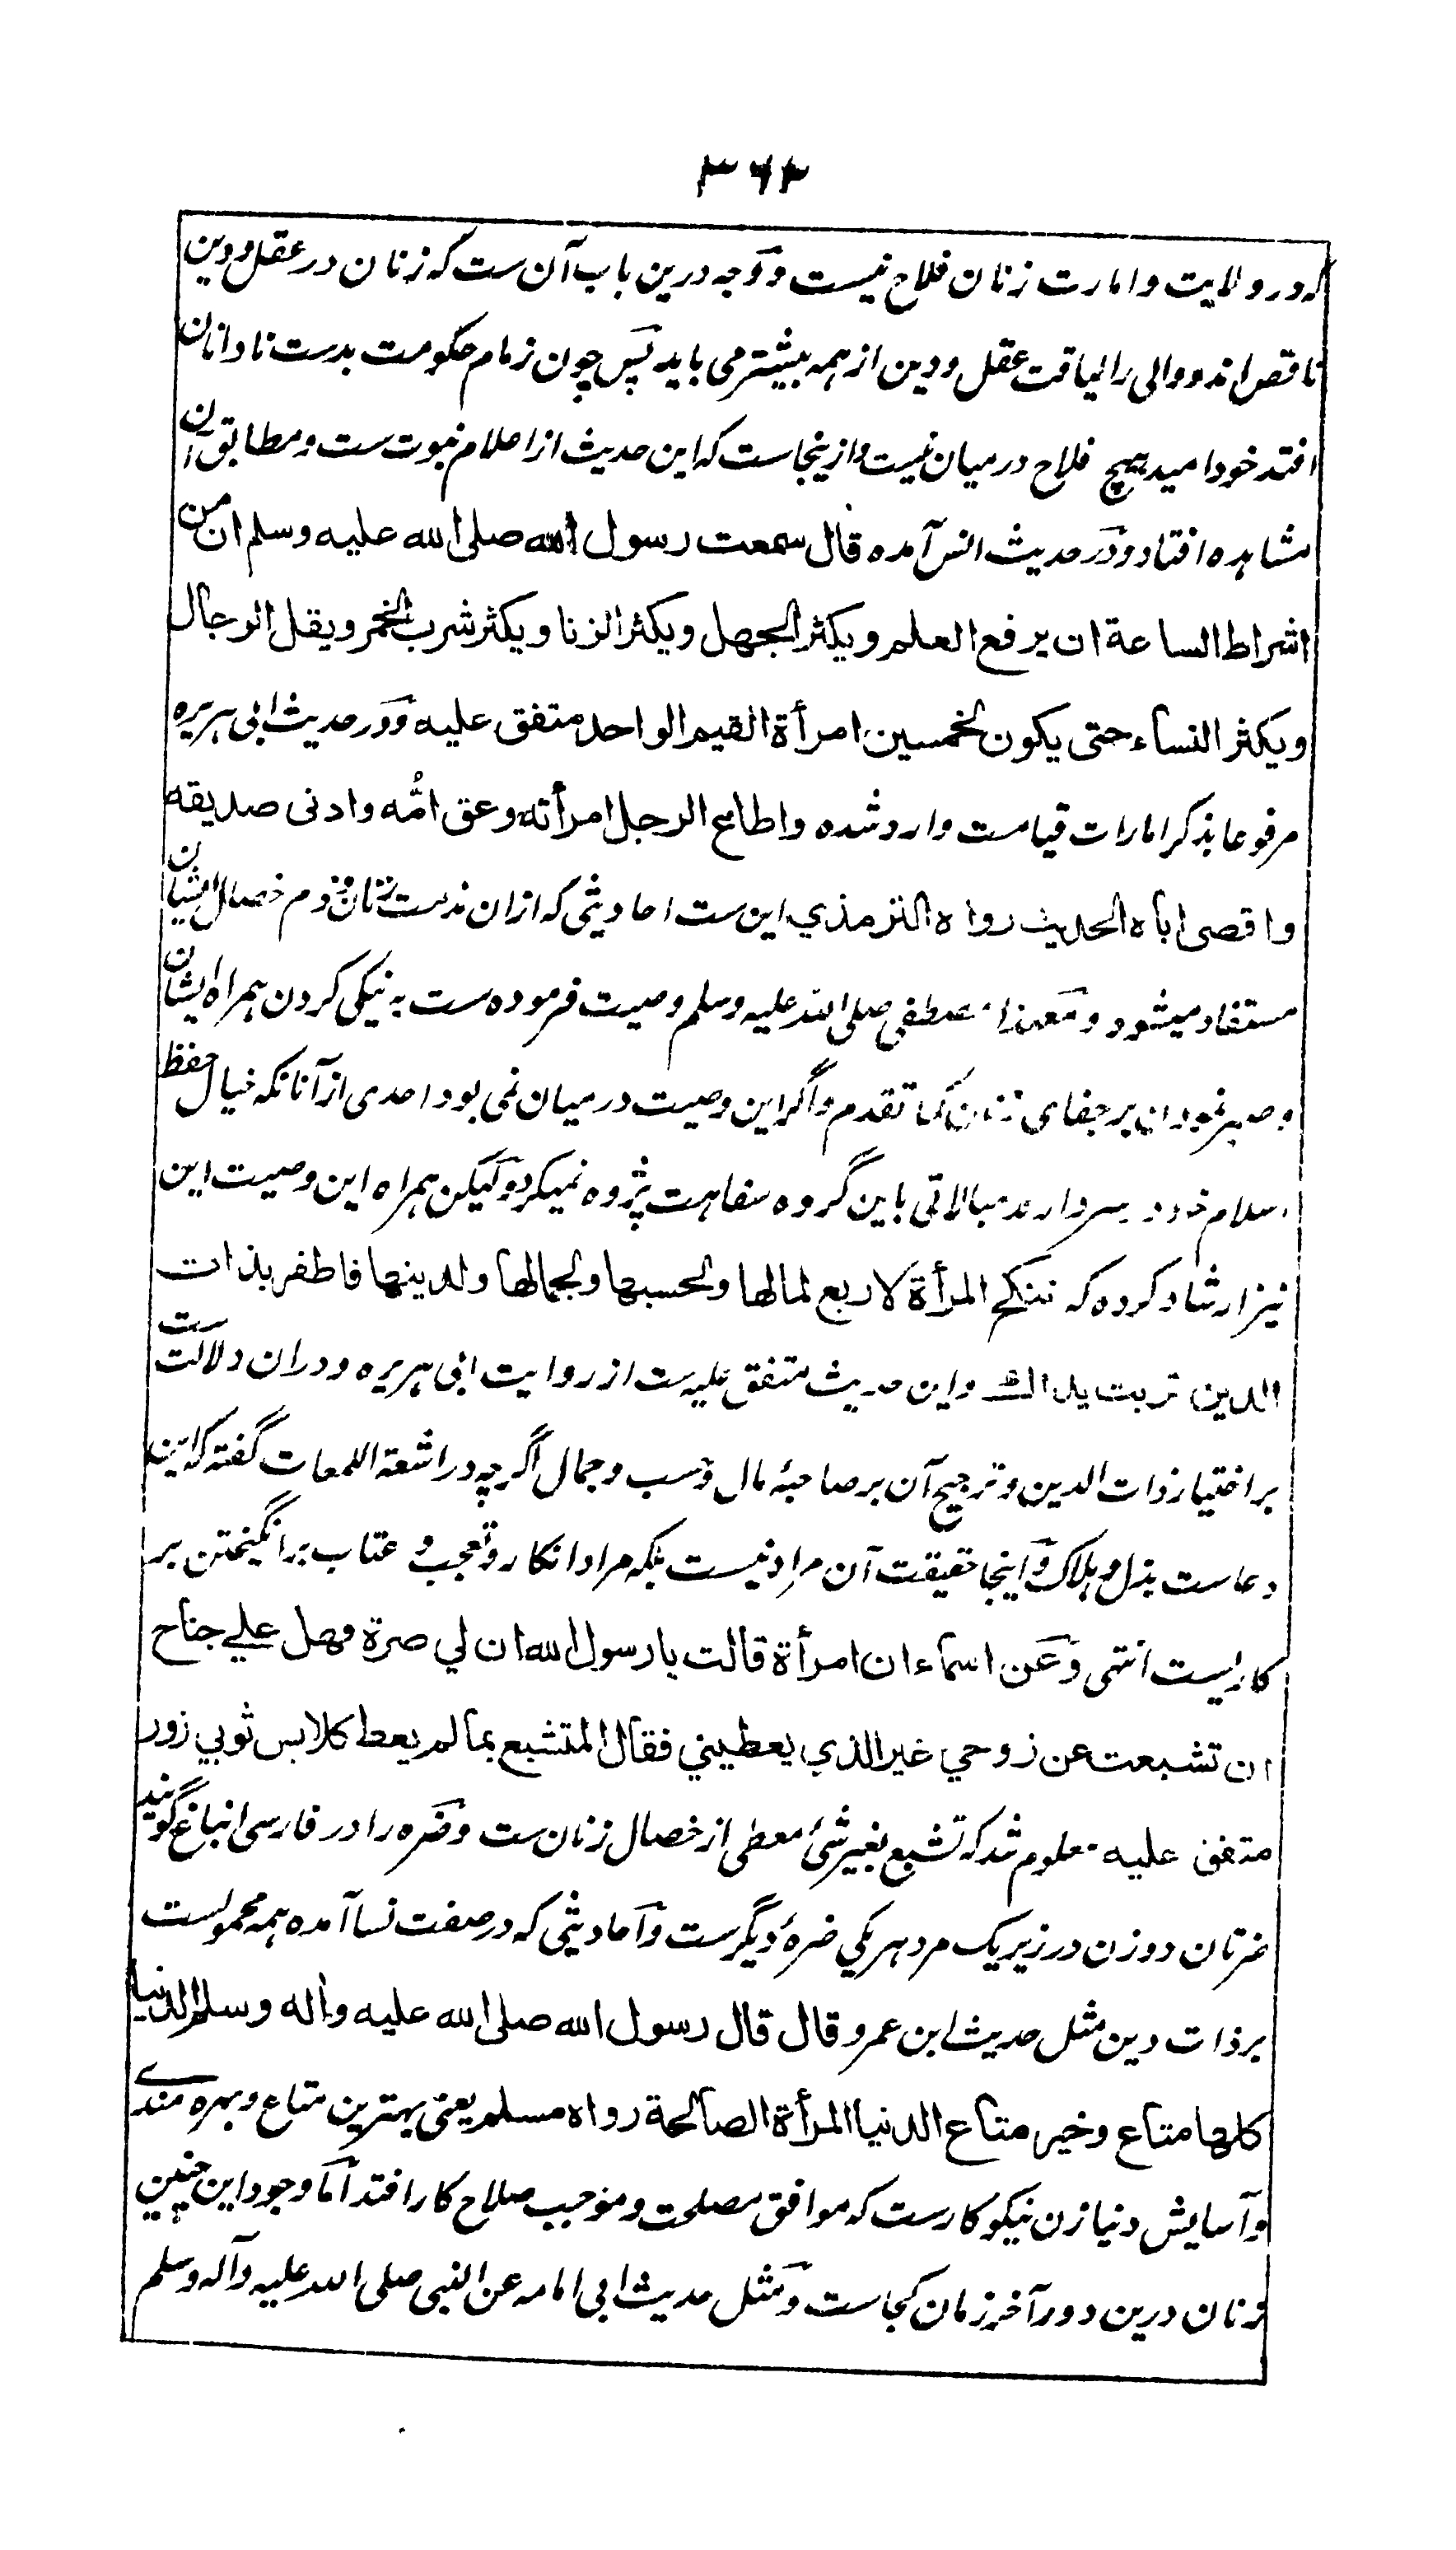 ۳۶۳
که در ولایت و امارت زنان فلاح نیست و وجه درین باب آن ست که زنان در عقل و دین
ناقص اند و والی را لیاقت عقل و دین از همه بیشتر می باید پس چون زمام حکومت بدست نادانان
افتد خود امید هیچ فلاح درمیان نیست و ازینجاست که این حدیث از اعلام نبوت ست و مطابق آن
مشاهده افتاد و در حدیث انس آمده قال سمعت رسول الله صلی الله علیه وسلم ان من
اشراط الساعة ان یرفع العلم ویکثر الجهل ویکثر الزنا ویکثر شرب الخمر ویقل الرجال
ویکثر النساء حتی یکون لخمسین امرأة القیم الواحد متفق علیه و در حدیث ابی هریره
مرفوعا بذکر امارات قیامت وارد شده واطاع الرجل امرأته وعق امّه وادنی صدیقه
واقصی اباه الحدیث رواه الترمذي این ست احادیثی که ازان مذمت زنان و ذم خصال ایشان
مستفاد میشود و معهذا مصطفی صلی الله علیه وسلم وصیت فرموده ست به نیکی کردن همراه ایشان
و صبر نمودن بر جفای زنان کما تقدم و اگر این وصیت درمیان نمی بود احدی از آنانکه خیال حفظ
اسلام خود در سر دارد مبالاتی باین گروه سفاهت پژوه نمیکرد و لیکن همراه این وصیت این
نیز ارشاد کرده که تنکح المرأة لاربع لمالها ولحسبها ولجمالها ولدینها فاظفر بذات
الدین تربت یداك و این حدیث متفق علیه ست از روایت ابی هریره و دران دلالت ست
بر اختیار ذات الدین و ترجیح آن بر صاحبۀ مال و حسب و جمال اگرچه در اشعة اللمعات گفته که این
دعاست بذل و هلاک و اینجا حقیقت آن مراد نیست بلکه مراد انکار و تعجب و عتاب برانگیختن بر
کاریست انتهی و عن اسماء ان امرأة قالت یا رسول الله ان لي ضرة فهل علي جناح
ان تشبعت عن زوجي غیر الذي یعطیني فقال المتشبع بما لم یعط کلابس ثوبي زور
متفق علیه معلوم شد که تشبع بغیر شئ معطی از خصال زنان ست و ضره را در فارسی انباغ گویند
ضرتان دو زن در زیر یک مرد هر یکی ضرۀ دیگر ست و احادیثی که در صفت نسا آمده همه محمولست
بر ذات دین مثل حدیث ابن عمرو قال قال رسول الله صلی الله علیه وأله وسلم الدنیا
کلها متاع وخیر متاع الدنیا المرأة الصالحة رواه مسلم یعنی بهترین متاع و بهره مندی
و آسایش دنیا زن نیکو کار ست که موافق مصلحت و موجب صلاح کار افتد اما وجود این چنین
زنان درین دور آخر زمان کجاست و مثل حدیث ابی امامه عن النبی صلی الله علیه و آله وسلم